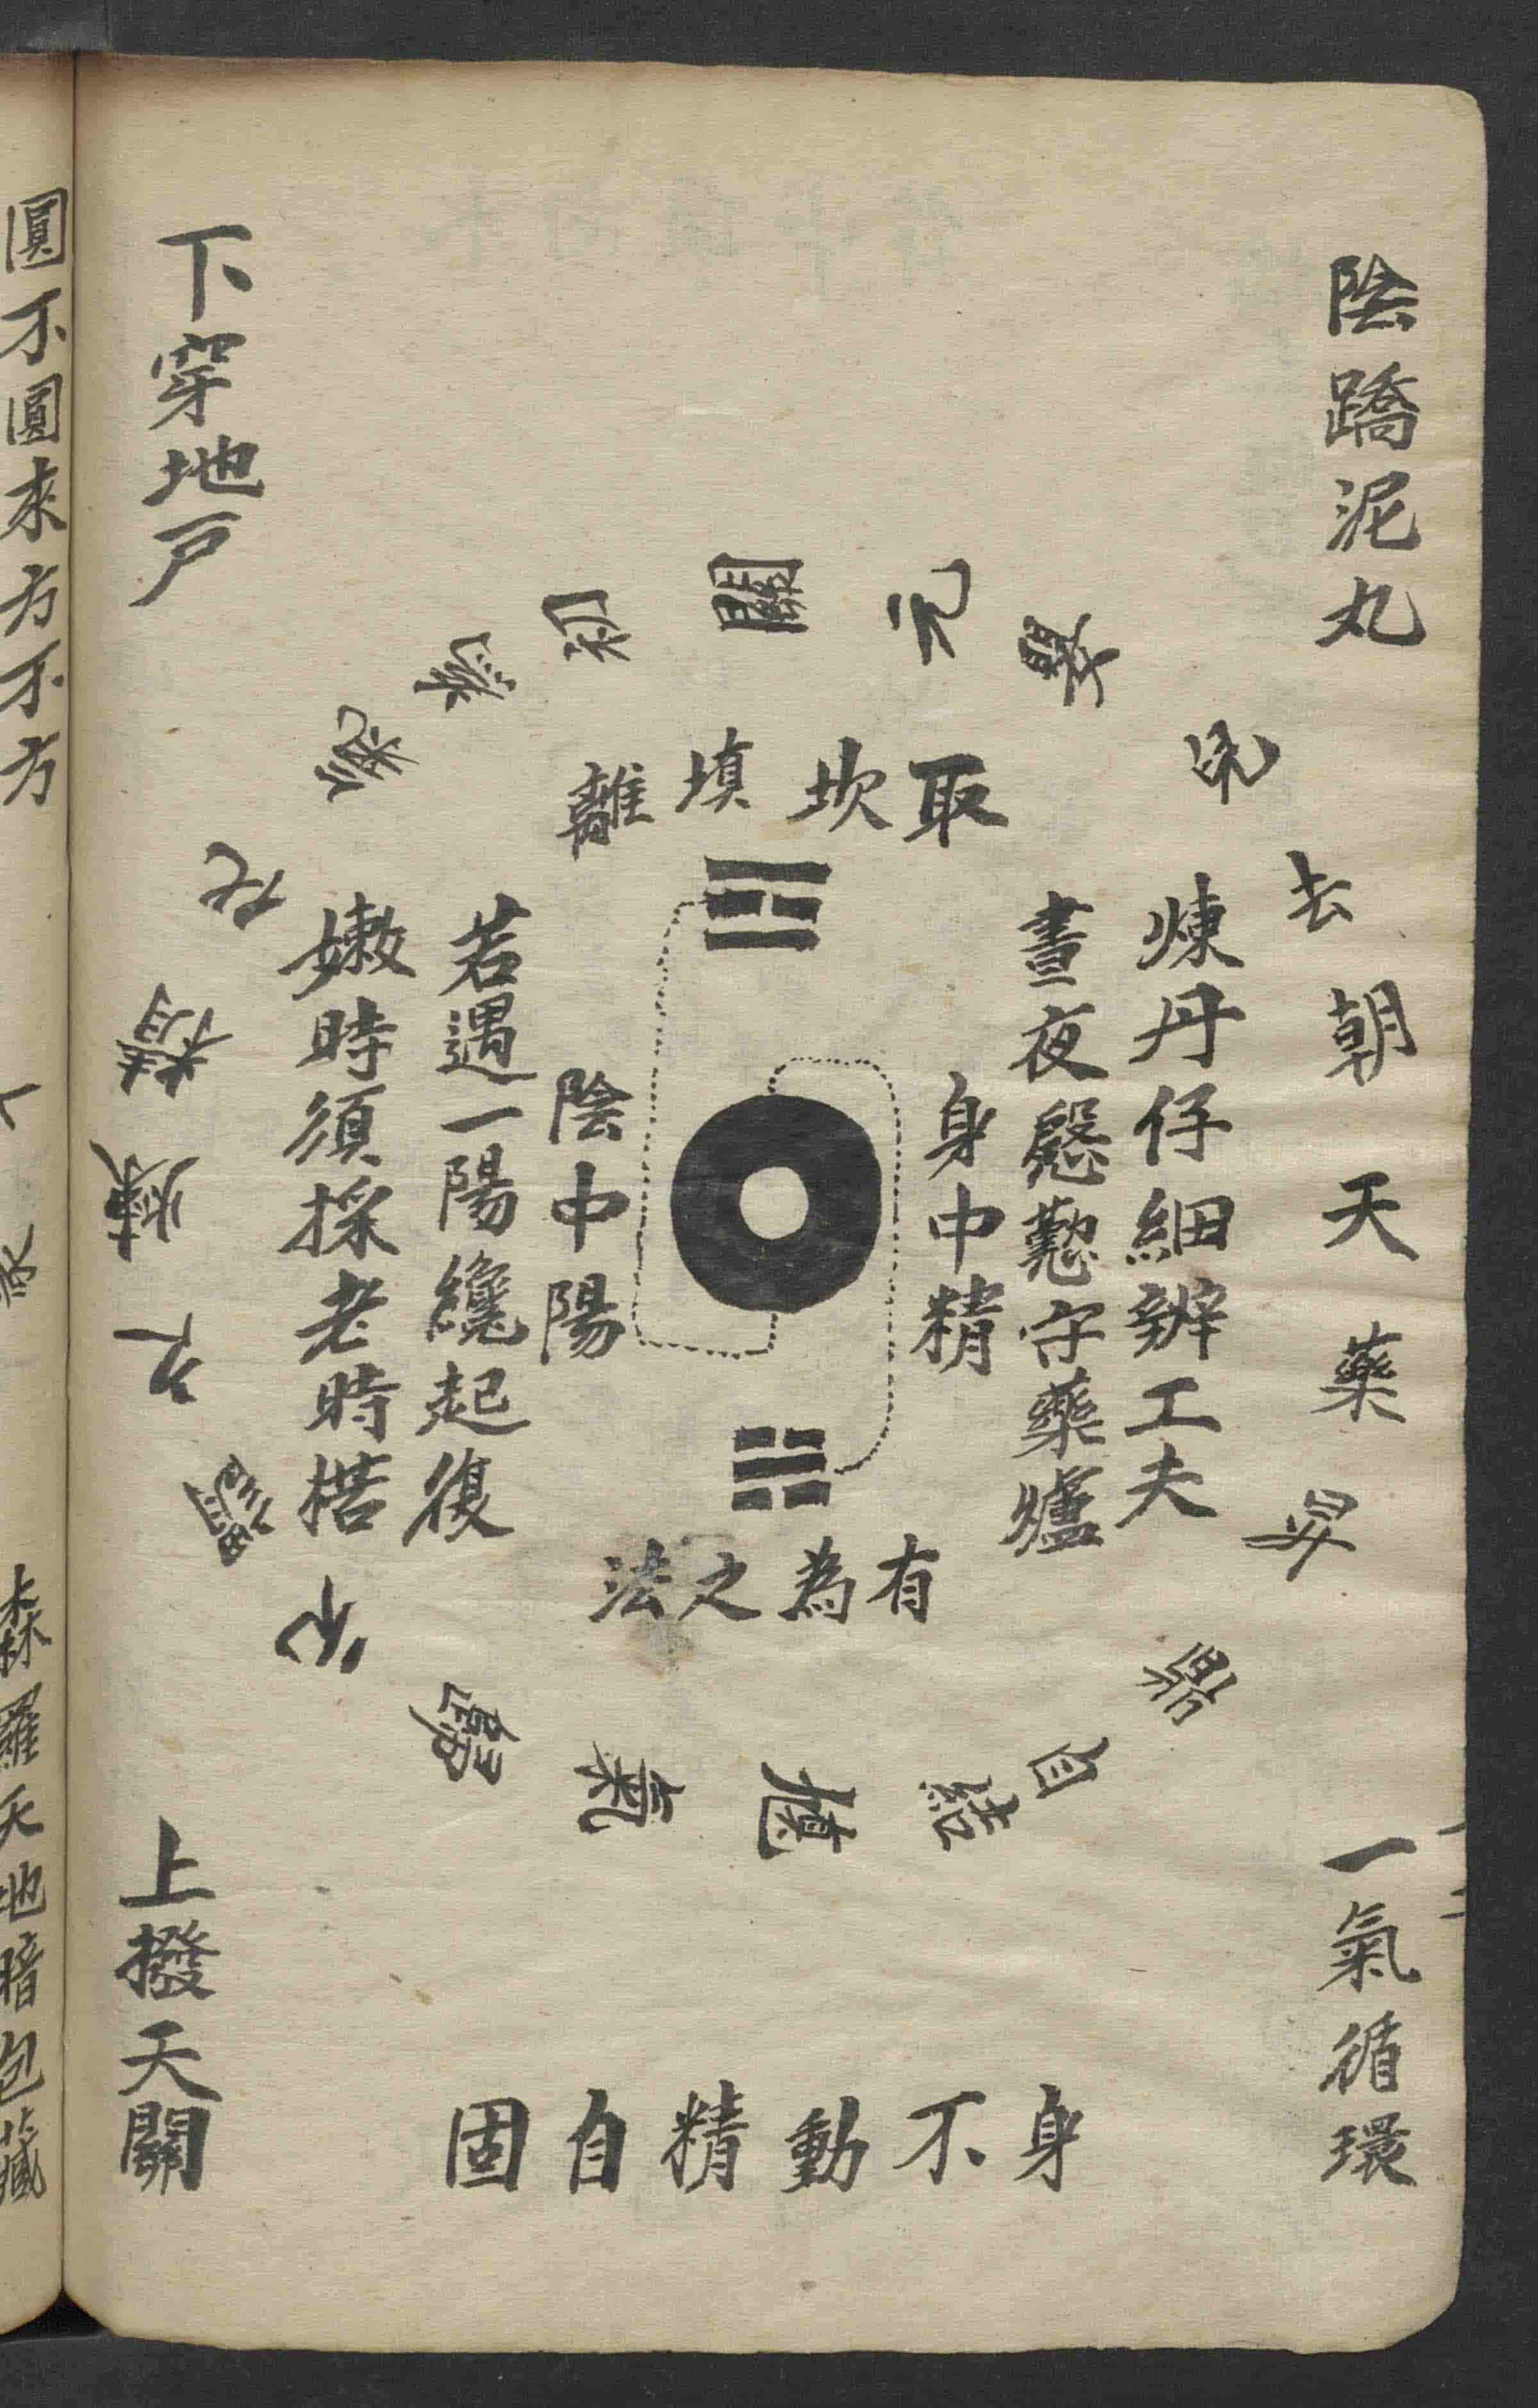 陰蹻泥丸
一氣循環
去朝天藥昇鼎自結
氣歸元謂之煉精化
初關元
煉丹仔細辦工夫
晝夜慇懃守藥爐
取坎填離
身中精
陰中陽
有為之法
若遇一陽纔起復
嫩時須採老時枯
身不動精自固
下穿地戶
上撥天關
圓不圓來方不方
森羅天地暗包藏